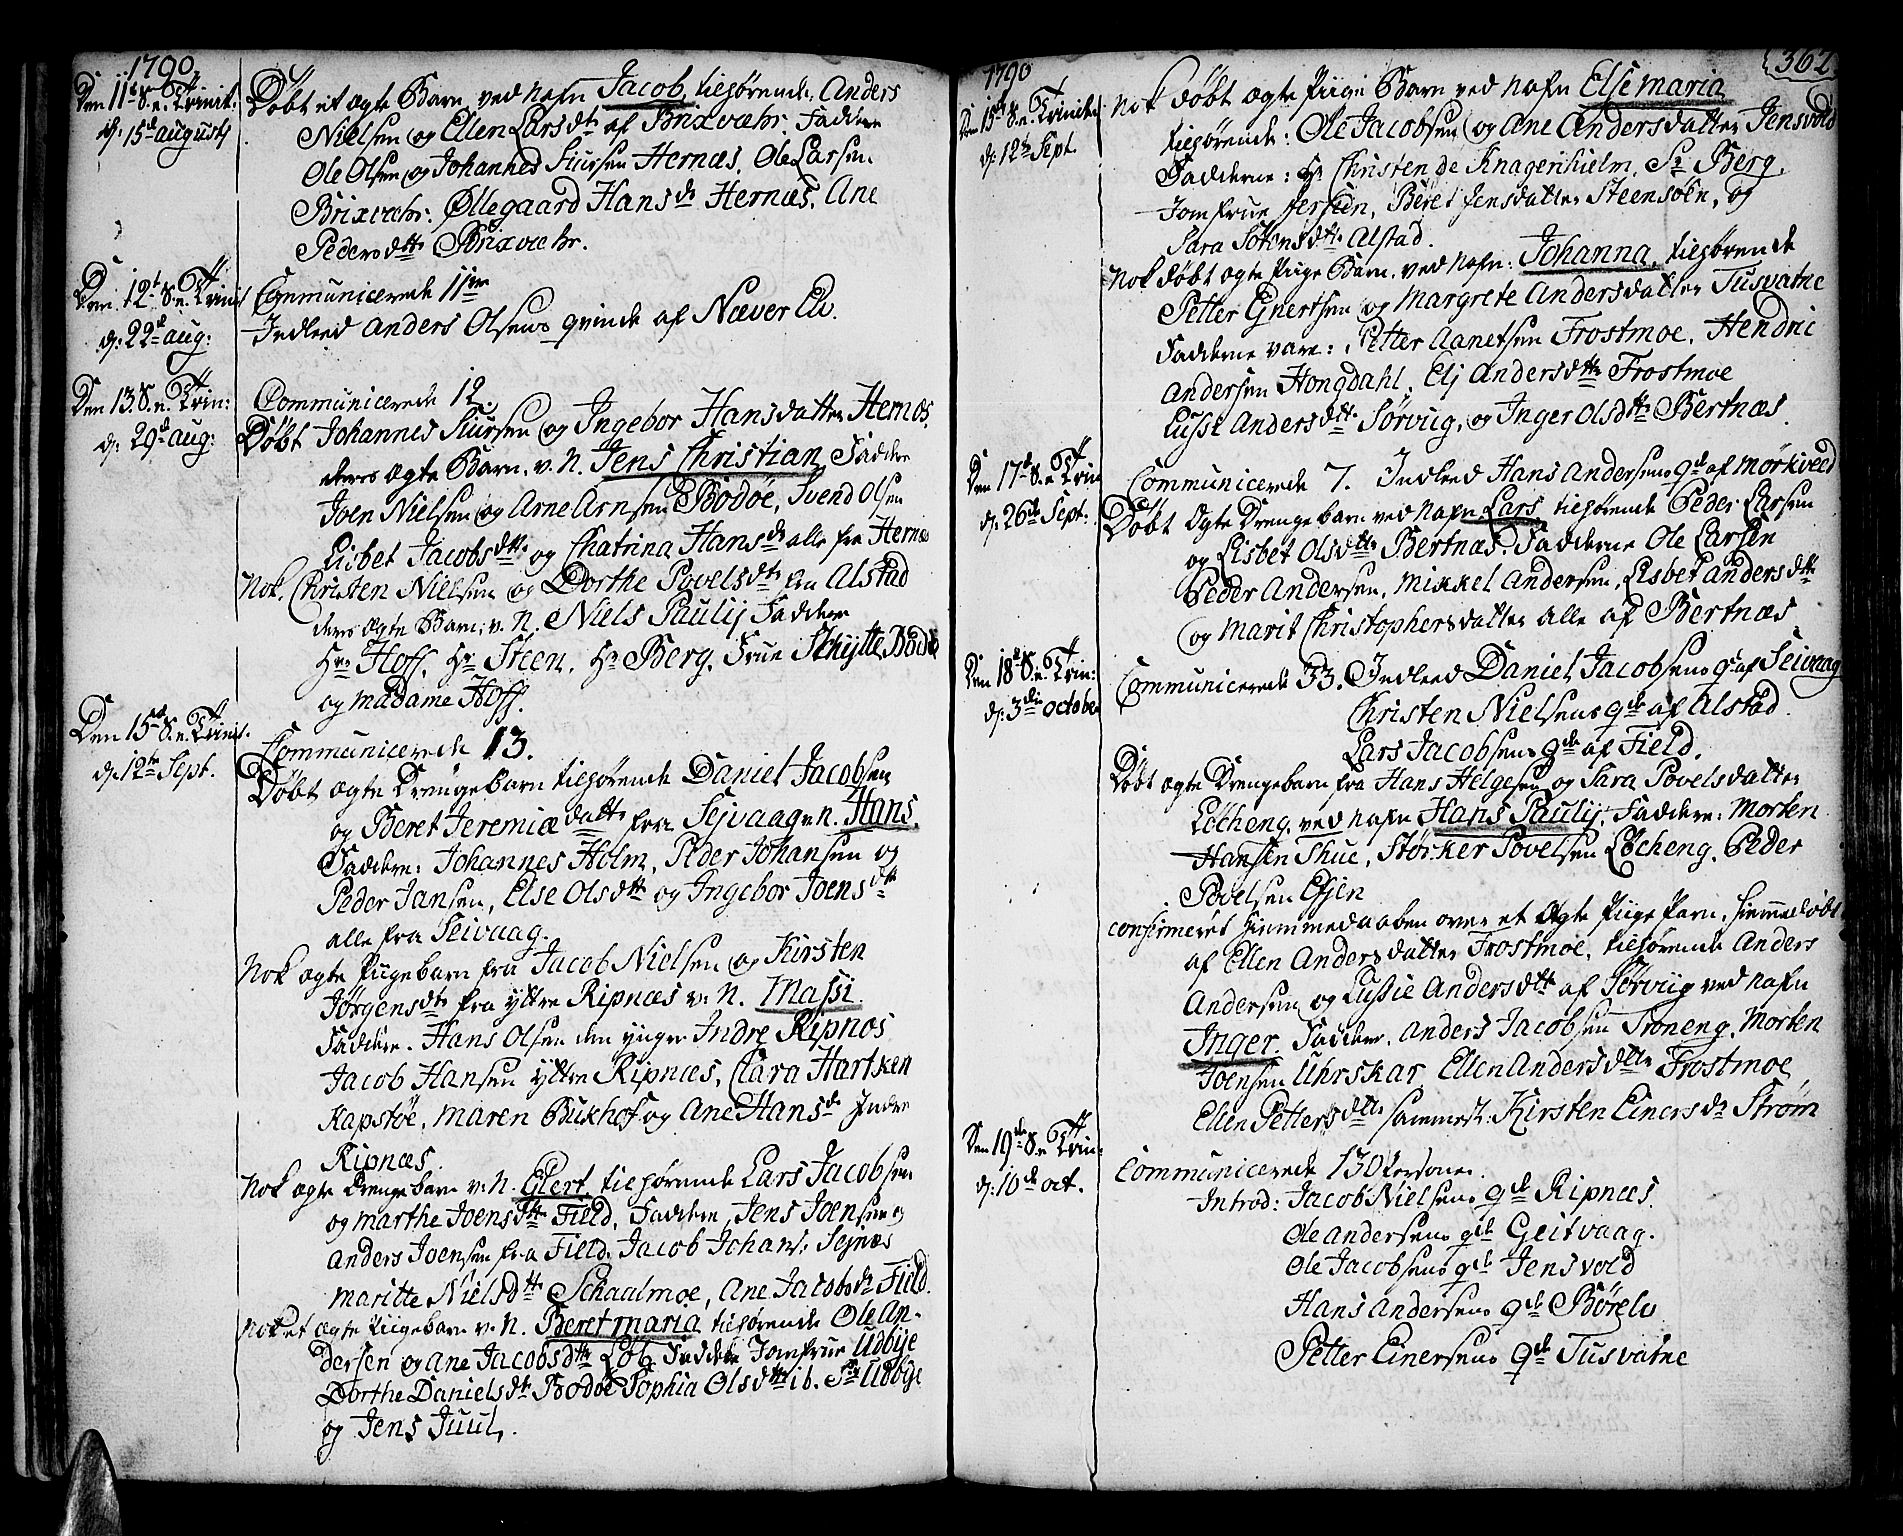 1790
Den 11te S. e. Trinit:
d: 15de augusty
Døbt et ægte Barn ved nafn Jacob, tilhørende Anders
Nielsen og Ellen Larsdtr af Brixvæhr. Faddere
Ole Olsen og Johannes Siursen Hernæs, Ole Larsen
Brixvæhr: Øllegaard Hansdr Hernæs, Ane
Pedersdttr Brixvæhr.
Den 12te S. e. Trinit
d: 22de aug:
Communicerede 11ve
Indleed Anders Olsens qvinde af Næver Elv.
Den 13. S. e. Trin:
d: 29de aug:
Communicerede 12.
Døbt Johannes Siursen og Ingebor Hansdatter Hernæs,
deres ægte Barn, v. N. Jens Christian Faddere
Joen Nielsen og Arne Arnsen Bodøe, Svend Olsen
Lisbet Jacobsdttr og Chatrina Hansdr alle fra Hernæs
Nok, Christen Nielsen og Dorthe Povelsdtr fra Alstad
deres ægte Barn, v. N. Niels Paulij Faddere
Hrr Hoff, Hr Steen, Hr Berg, Frue Schytte Bodøe
og Madame Hoff.
Den 15de S. e. Trinit.
d: 12te Sept.
Communicerede 13.
Døbt ægte Drengebarn tilhørende Daniel Jacobsen
og Beret Jeremiædattr fra Sejvaag v. n. Hans.
Faddere: Johannes Holm, Peder Johansen og
Peder Jansen, Else Olsdttr og Ingebor Joensdttr
alle fra Seivaag.
Nok ægte Pigebarn fra Jacob Nielsen og Kirsten
Jørgensdtr fra yttre Ripnæs v: N. Massi.
Faddere. Hans Olsen den yngre Indre Ripnæs
Jacob Hansen yttre Ripnæs, Clara Hartken
Kapstøe, Maren Bukhof og Ane Hansdr Indre
Ripnæs.
Nok ægte Drengebarn v: N. Elert tilhørende Lars Jacobsen
og Marthe Joensdttr Field, Faddere Jens Joensen og
Anders Joensen fra Field, Jacob Johans: Sejnæs
Maritte Nielsdttr Schaalmoe, Ane Jacobsdr Field.
Nok et ægte Pigebarn v. N. Beret Maria tilhørende Ole An-
dersen og Ane Jacobsdttr Løb, Faddere Jomfrue Udbije
Dorthe Danielsdtr Bodøe Sophia Olsdttr ib. Sr Udbye
og Jens Juul.
1790
362
Den 15de S. e. Trinitat.
d: 12te Sept.
Nok døbt ægte Piige Barn ved nafn Else Maria
tilhørende: Ole Jacobsen og Ane Andersdatter Jensvold
Fadderne: Hr Christen de Knagenhielm, Sr Berg,
Jomfrue Jersein, Beret Jensdatter Steensøen, og
Sara Sørensdttr Alstad.
Nok døbt ægte Piige Barn, ved nafn: Johanna, tilhørende
Petter Einertsen og Margrete Andersdatter Tusvatne
Fadderne vare: Petter Aanetsen Frostmoe, Hendric
Andersen Hongdahl, Elj Andersdttr Frostmoe
Lusse Andersdttr Sørviig, og Inger Olsdttr Bertnæs.
Den 17de S. e. Trin
d: 26de Sept:
Communicerede 7. Indleed Hans Andersens qde af Mørkved
Døbt ægte Drengebarn ved nafn Lars tilhørende Peder Larsen
og Lisbet Olsdttr Bertnæs. Fadderne Ole Larsen
Peder Andersen, Mikkel Andersen, Lisbet Andersdttr
og Marit Christophersdatter alle af Bertnæs
Den 18de S. e. Trin:
d: 3die October
Communicerede 33. Indleed Daniel Jacobsens qde af Seivaag
Christen Nielsens qde af Alstad.
Lars Jacobsens qde af Field.
Døbt ægte Drengebarn fra Hans Helgesen og Sara Povelsdatter
Løcheng, ved nafn Hans Paulij, Faddere: Morten
Hansen Thue, Størker Povelsen Løcheng, Peder
Povelsen Esjen
Confirmeret hiemmedaaben over et ægte Piige Barn, hiemmedøbt
af Ellen Andersdatter Frostmoe, tilhørende Anders
Andersen og Lussie Andersdttr af Sørviig ved nafn
Inger. Faddere, Anders Jacobsen Troneng, Morten
Joensen Uhrskar, Ellen Andersdttr Frostmoe
Ellen Pettersdttr sammest. Kirsten Einersdr Strøm
Den 19de S. e. Trin:
d: 10de oct.
Communicerede 130 Persone
Introd: Jacob Nielsens qde Ripnæs.
Ole Andersens qde Geitvaag.
Ole Jacobsens qde Jensvold
Hans Andersens qde Børelv
Petter Einersens qde Tusvatne